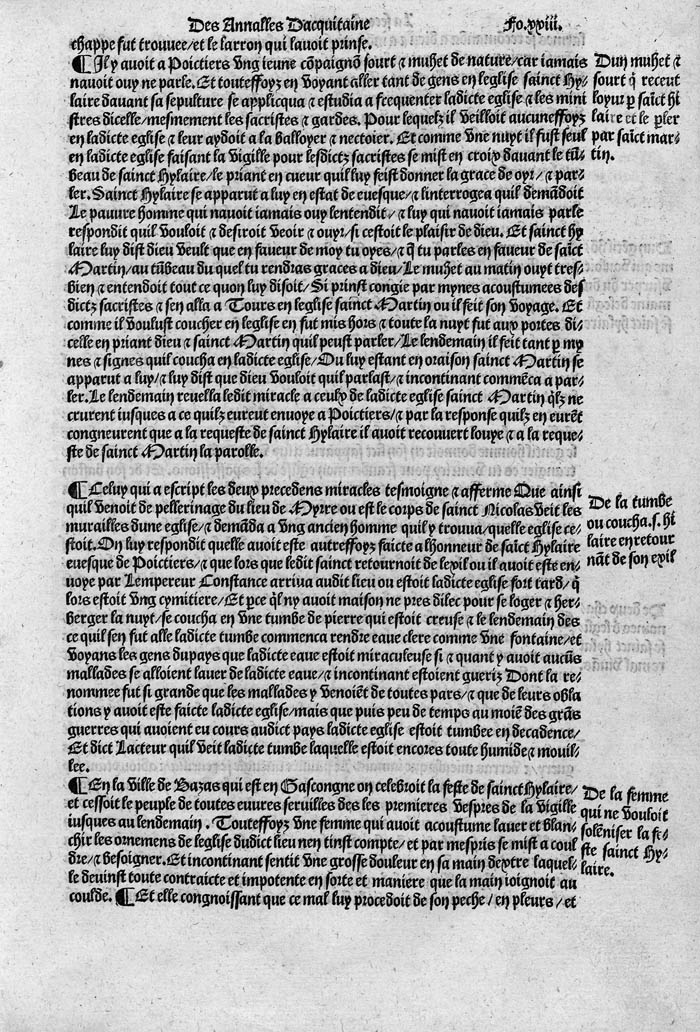 Des Annalles Dacquitaine
Fo.xxiii.
chappe fut trouuee/et le larron qui lauoit prinse.
¶ Il y auoit a Poictiers vng ieune cõpaignõ sourt ⁊ muhet de nature/car iamais
nauoit ouy ne parle. Et touteffoyz en voyant aller tant de gens en leglise sainct Hy⸗
laire dauant sa sepulture se applicqua ⁊ estudia a frequenter ladicte eglise ⁊ les mini
stres dicelle/mesmement les sacristes ⁊ gardes. Pour lequelz il veilloit aucuneffoyz
en ladicte eglise ⁊ leur aydoit a la balloyer ⁊ nectoier. Et comme vne nuyt il fust seul
en ladicte eglise faisant la vigille pour lesdictz sacristes se mist en croix dauant le tũ⸗
beau de sainct Hylaire/le priant en cueur quil luy feist donner la grace de oyr/ ⁊ par⸗
ler. Sainct Hylaire se apparut a luy en estat de euesque/⁊ linterrogea quil demãdoit
Le pauure homme qui nauoit iamais ouy lentendit/⁊ luy qui nauoit iamais parle
respondit quil vouloit ⁊ desiroit veoir ⁊ ouyr/si cestoit le plaisir de dieu. Et sainct hy
laire luy dist dieu veult que en faueur de moy tu oyes/⁊ q̃ tu parles en faueur de saĩct
Martin/au tũbeau du quel tu rendras graces a dieu. Le muhet au matin ouyt tres⸗
bien ⁊ entendoit tout ce quon luy disoit/ Si prinst congie par mynes acoustumees des
dictz sacristes ⁊ sen alla a Tours en leglise sainct Martin ou il feit son voyage. Et
comme il voulust coucher en leglise en fut mis hors ⁊ toute la nuyt fut aux portes di⸗
celle en priant dieu ⁊ sainct Martin quil peust parler. Le lendemain il feit tant p̱ my
nes ⁊ signes quil coucha en ladicte eglise/Ou luy estant en oraison sainct Martin se
apparut a luy/⁊ luy dist que dieu vouloit quil parlast/⁊ incontinant commẽca a par⸗
ler. Le lendemain reuella ledit miracle a ceulx de ladicte eglise sainct Martin q̃lz ne
crurent iusques a ce quilz eurent enuoye a Poictiers/⁊ par la response quilz en eurẽt
congneurent que a la requeste de sainct Hylaire il auoit recouuert louye ⁊ a la reque⸗
ste de sainct Martin la parolle.
Dun muhet ⁊
sourt q̃ receut
loyur p̱ saĩct hi
laire et le p̱ler
par saĩct mar⸗
tin.
¶ Celuy qui a escript les deux precedens miracles tesmoigne ⁊ afferme Que ainsi
quil venoit de pellerinage du lieu de Myrre ou est le corps de sainct Nicolas veit les
murailles dune eglise/⁊ demãda a vng ancien homme quil y trouua/quelle eglise ce⸗
stoit. On luy respondit quelle auoit este autreffoyz faicte a lhonneur de saĩct Hylaire
euesque de Poictiers/⁊ que lors que ledit sainct retournoit de lexil ou il auoit este en⸗
uoye par Lempereur Constance arriua audit lieu ou estoit ladicte eglise fort tard/ q̃
lors estoit vng cymitiere/Et p̱ce q̃l ny auoit maison ne pres dilec pour se loger ⁊ her⸗
berger la nuyt/se coucha en vne tumbe de pierre qui estoit creuse ⁊ le lendemain des
ce quil sen fut alle ladicte tumbe commenca rendre eaue clere comme vne fontaine/et
voyans les gens du pays que ladicte eaue estoit miraculeuse si ⁊ quant y auoit aucũs
mallades se alloient lauer de ladicte eaue/⁊ incontinant estoient gueriz Dont la re⸗
nommee fut si grande que les mallades y venoiẽt de toutes pars/⁊ que de leurs obla
tions y auoit este faicte ladicte eglise/mais que puis peu de temps au moiẽ des grãs
guerres qui auoient eu cours audict pays ladicte eglise estoit tumbee en decadence/
Et dict Lacteur quil veit ladicte tumbe laquelle estoit encores toute humide ⁊ mouil⸗
lee.
De la tumbe
ou coucha.s. hi
laire en retour
nãt de son exil
¶ En la ville de Bazas qui est en Gascongne on celebroit la feste de sainct Hylaire/
et cessoit le peuple de toutes euures seruilles des les premieres vespres de la vigille
iusques au lendemain . Touteffoyz vne femme qui auoit acoustume lauer et blan⸗
chir les ornemens de leglise dudict lieu nen tinst compte/et par mespris se mist a coul
dre/⁊ besoigner. Et incontinant sentit vne grosse douleur en sa main dextre laquel⸗
le deuinst toute contraicte et impotente en sorte et maniere que la main ioignoit au
coulde. ¶ Et elle congnoissant que ce mal luy procedoit de son peche/en pleurs/et
De la femme
qui ne vouloit
solẽniser la fe⸗
ste sainct Hy⸗
laire.